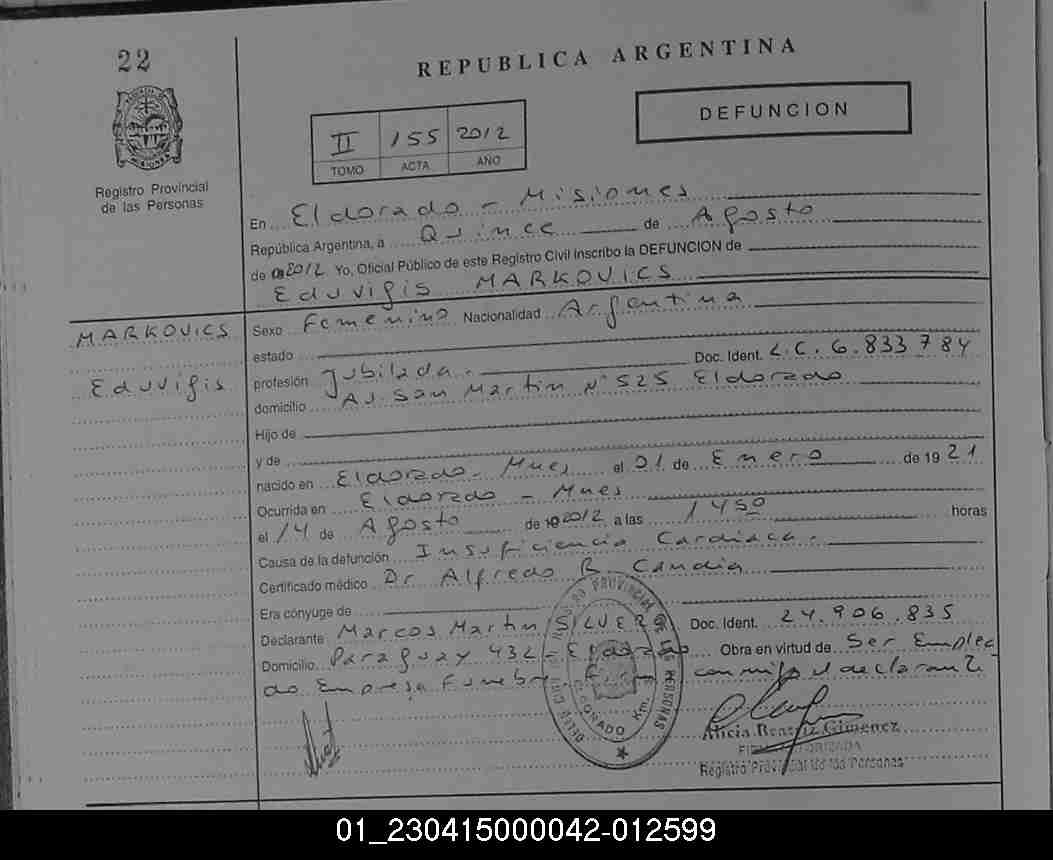 22
REPUBLICA ARGENTINA
DEFUNCION
II 155 2012
TOMO ACTA AÑO
Registro Provincial
de las Personas
En Eldorado - Misiones
República Argentina, a Quince de Agosto
de 2012 Yo, Oficial Público de este Registro Civil Inscribo la DEFUNCION de
Eduvigis MARKOVICS
MARKOVICS
Eduvigis
Sexo Femenino Nacionalidad Argentina
estado
profesión Jubilada. Doc. Ident. L.C. 6.833784
domicilio Av. San Martin Nº 525 Eldorado
Hijo de
y de
nacido en Eldorado - Mnes el 01 de Enero de 1921
Ocurrida en Eldorado - Mnes
el 14 de Agosto de 2012 a las 1450 horas
Causa de la defunción Insuficiencia Cardiaca.
Certificado médico Dr Alfredo R Candia
Era cónyuge de
Declarante Marcos Martin SILVERO Doc. Ident. 24.906.835
Domicilio Paraguay 432 - Eldorado Obra en virtud de Ser Emplea
do Empresa Funebre Firma conmigo el declarante
PROVINCIAL DE LAS PERSONAS
ELDORADO Km.
Alicia Beatriz Gimenez
FIRMA AUTORIZADA
Registro Provincial de las Personas
01_230415000042-012599